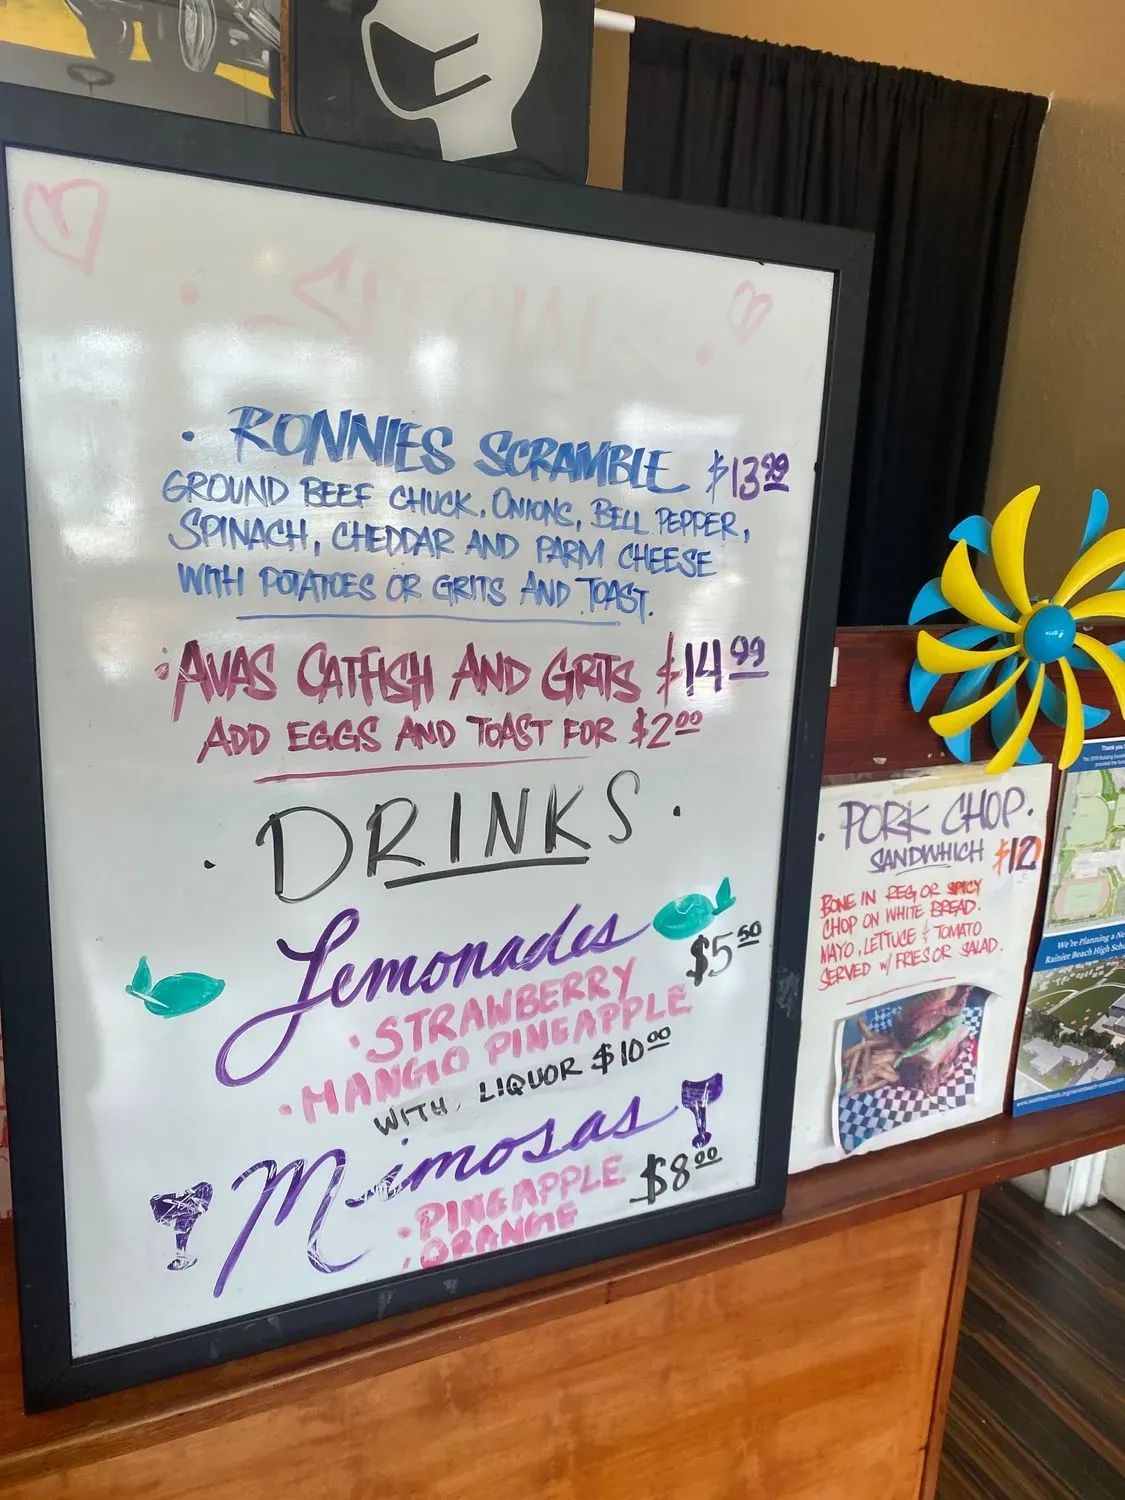 • SPECIALS •
• RONNIES SCRAMBLE $13.99
GROUND BEEF CHUCK, ONIONS, BELL PEPPER,
SPINACH, CHEDDAR AND PARM CHEESE
WITH POTATOES OR GRITS AND TOAST.
• AVAS CATFISH AND GRITS $14.99
ADD EGGS AND TOAST FOR $2.00
• DRINKS •
Lemonades $5.50
• STRAWBERRY
• MANGO PINEAPPLE
WITH LIQUOR $10.00
Mimosas $8.00
• PINEAPPLE
• ORANGE
• PORK CHOP •
SANDWHICH $12
BONE IN REG OR SPICY
CHOP ON WHITE BREAD.
MAYO, LETTUCE & TOMATO
SERVED W/ FRIES OR SALAD.
Thank you
We're Planning a Ne
Rainier Beach High Scho